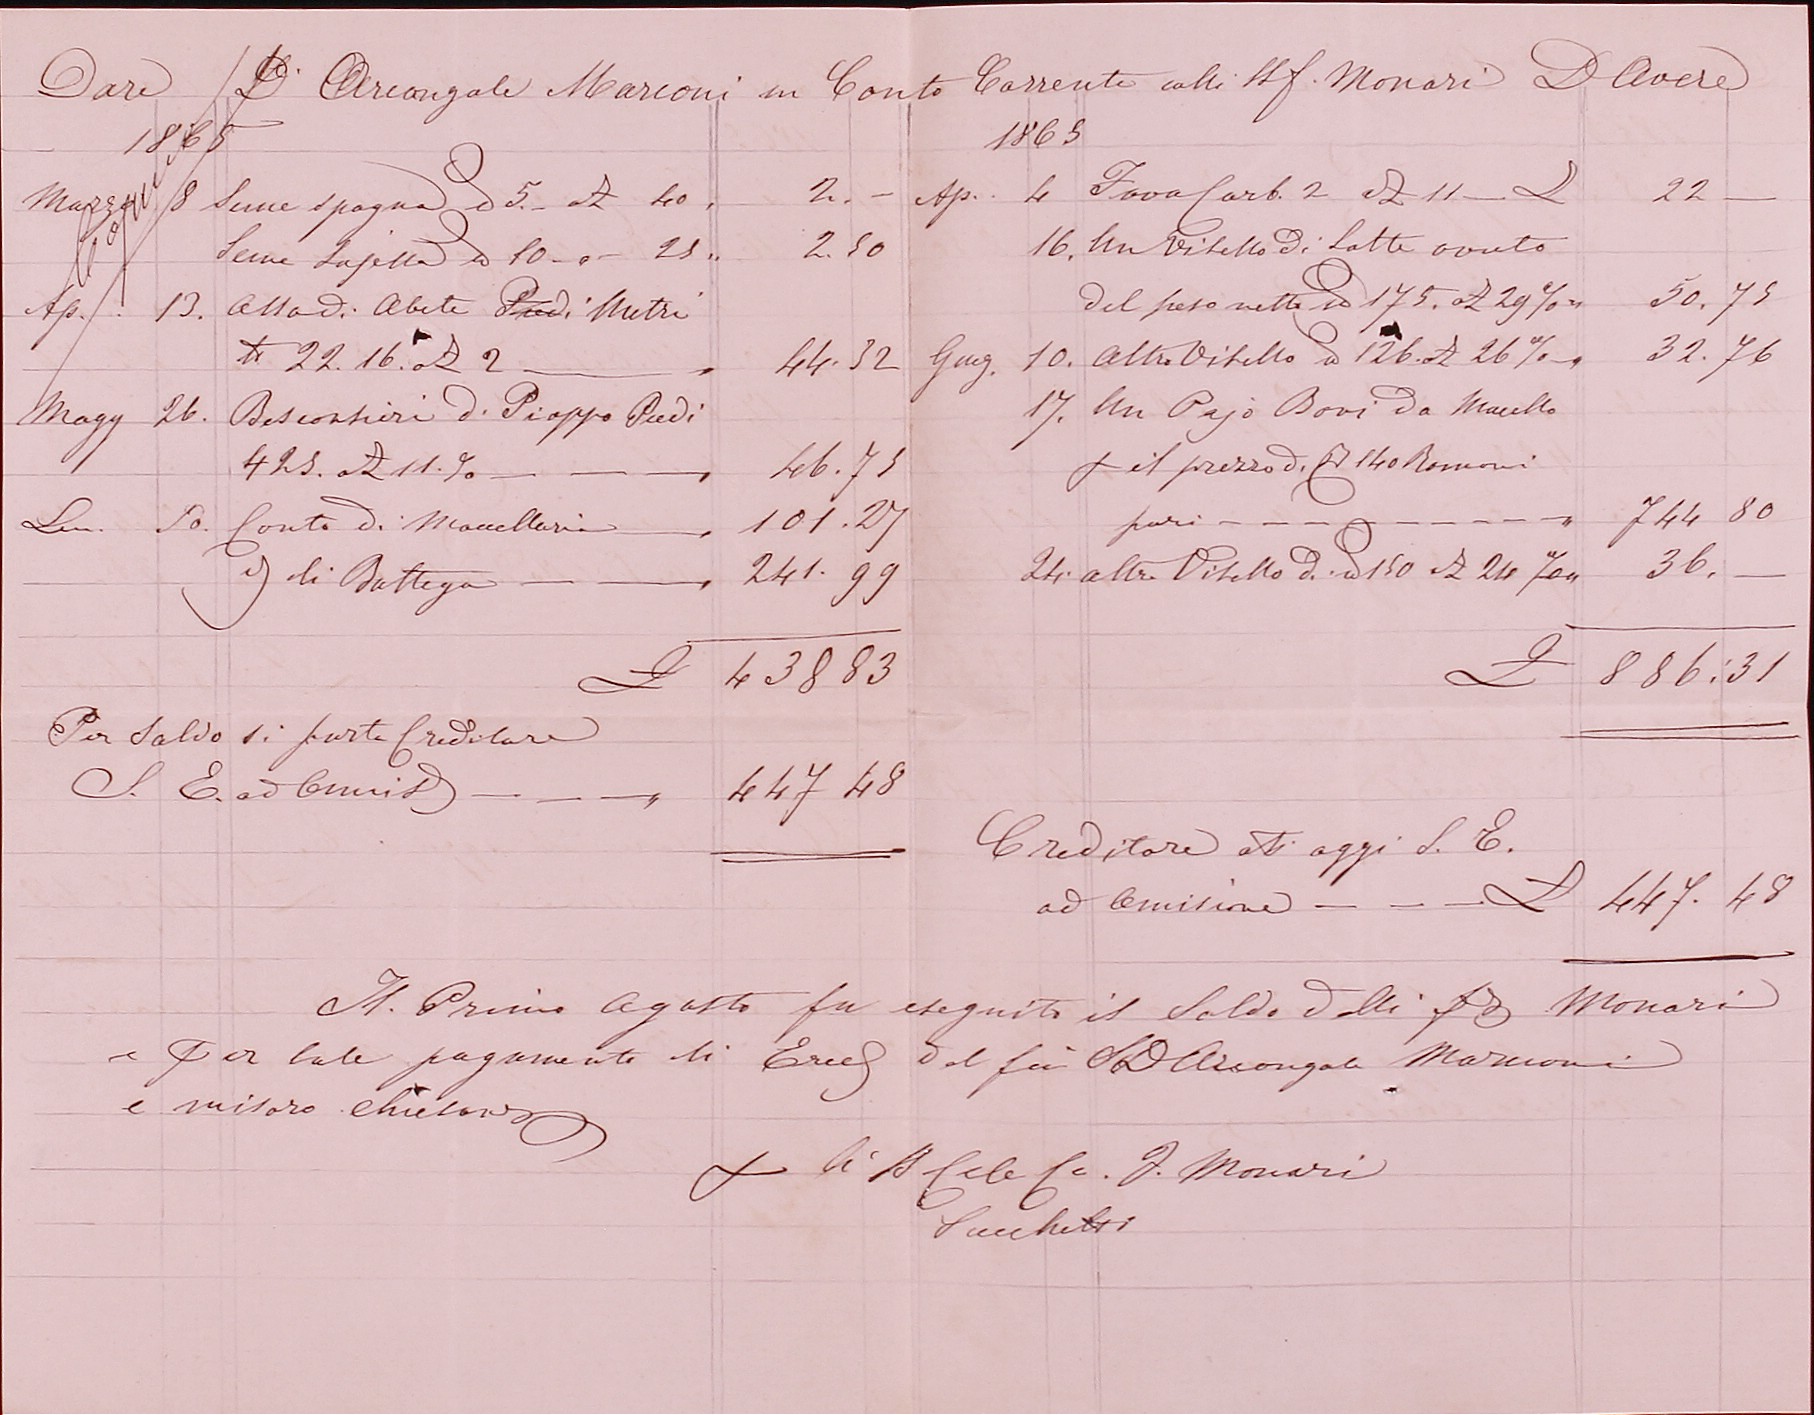 Dare D. Arcangale Marconi in Conto Corrente colli ff. Monari D Avere
1865
Copia
Marzo 8 Seme spagna 5. a 40 2. –
Seme 10 – 25 2.50
Ap. 13. Assa di Abete Piedi Metri
22.16. a 2 44.32
Magg 26. Bescontieri di Pioppo Piedi
425. a 11. % 46.75
Lu. 10. Conto di Macelleria 101.27
di Bottega 241.99
£ 438 83
Per Saldo si porta Creditore
S. E. ad Omis 447 48
1865
Ap. 4 Fava Corb. 2 a 11 £ 22 –
16. Un Vitello di Latte avuto
del peso netto 175. a 29 % 50.75
Giug. 10. Altro Vitello 126. a 26 % 32.76
17. Un Pajo Bovi da Macello
il prezzo di 140 Romani
pari 744 80
24. altro Vitello di 150 a 24 % 36. –
£ 886:31
Creditore oggi S. E.
ad Omisione £ 447.48
Il Primo Agosto fu eseguito il Saldo dalli Monari
e per tale pagamento li Ered del fu Arcangale Marconi
e
li Monari
Sacchetti